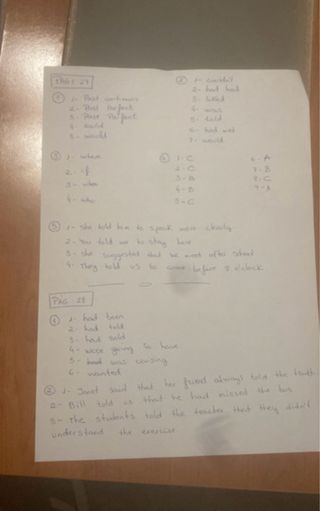 PAG: 27
① 1- Past continuous
2- Past Perfect
3- Past Perfect
4- could
5- would
② 1- couldn't
2- had had
3- liked
4- was
5- told
6- had met
7- would
③ 1- where
2- if
3- who
4- who
④ 1- C
2- C
3- B
4- B
5- C
6- A
7- B
8- C
9- A
⑤ 1- She told him to speak more clearly
2- You told me to stay here
3- she suggested that we meet after school
4- They told us to come before 5 o'clock
PAG: 28
① 1- had been
2- had told
3- had sold
4- were going to have
5- was causing
6- wanted
② 1- Janet said that her friend always told the truth.
2- Bill told us that he had missed the bus
3- The students told the teacher that they didn't
understand the exercise